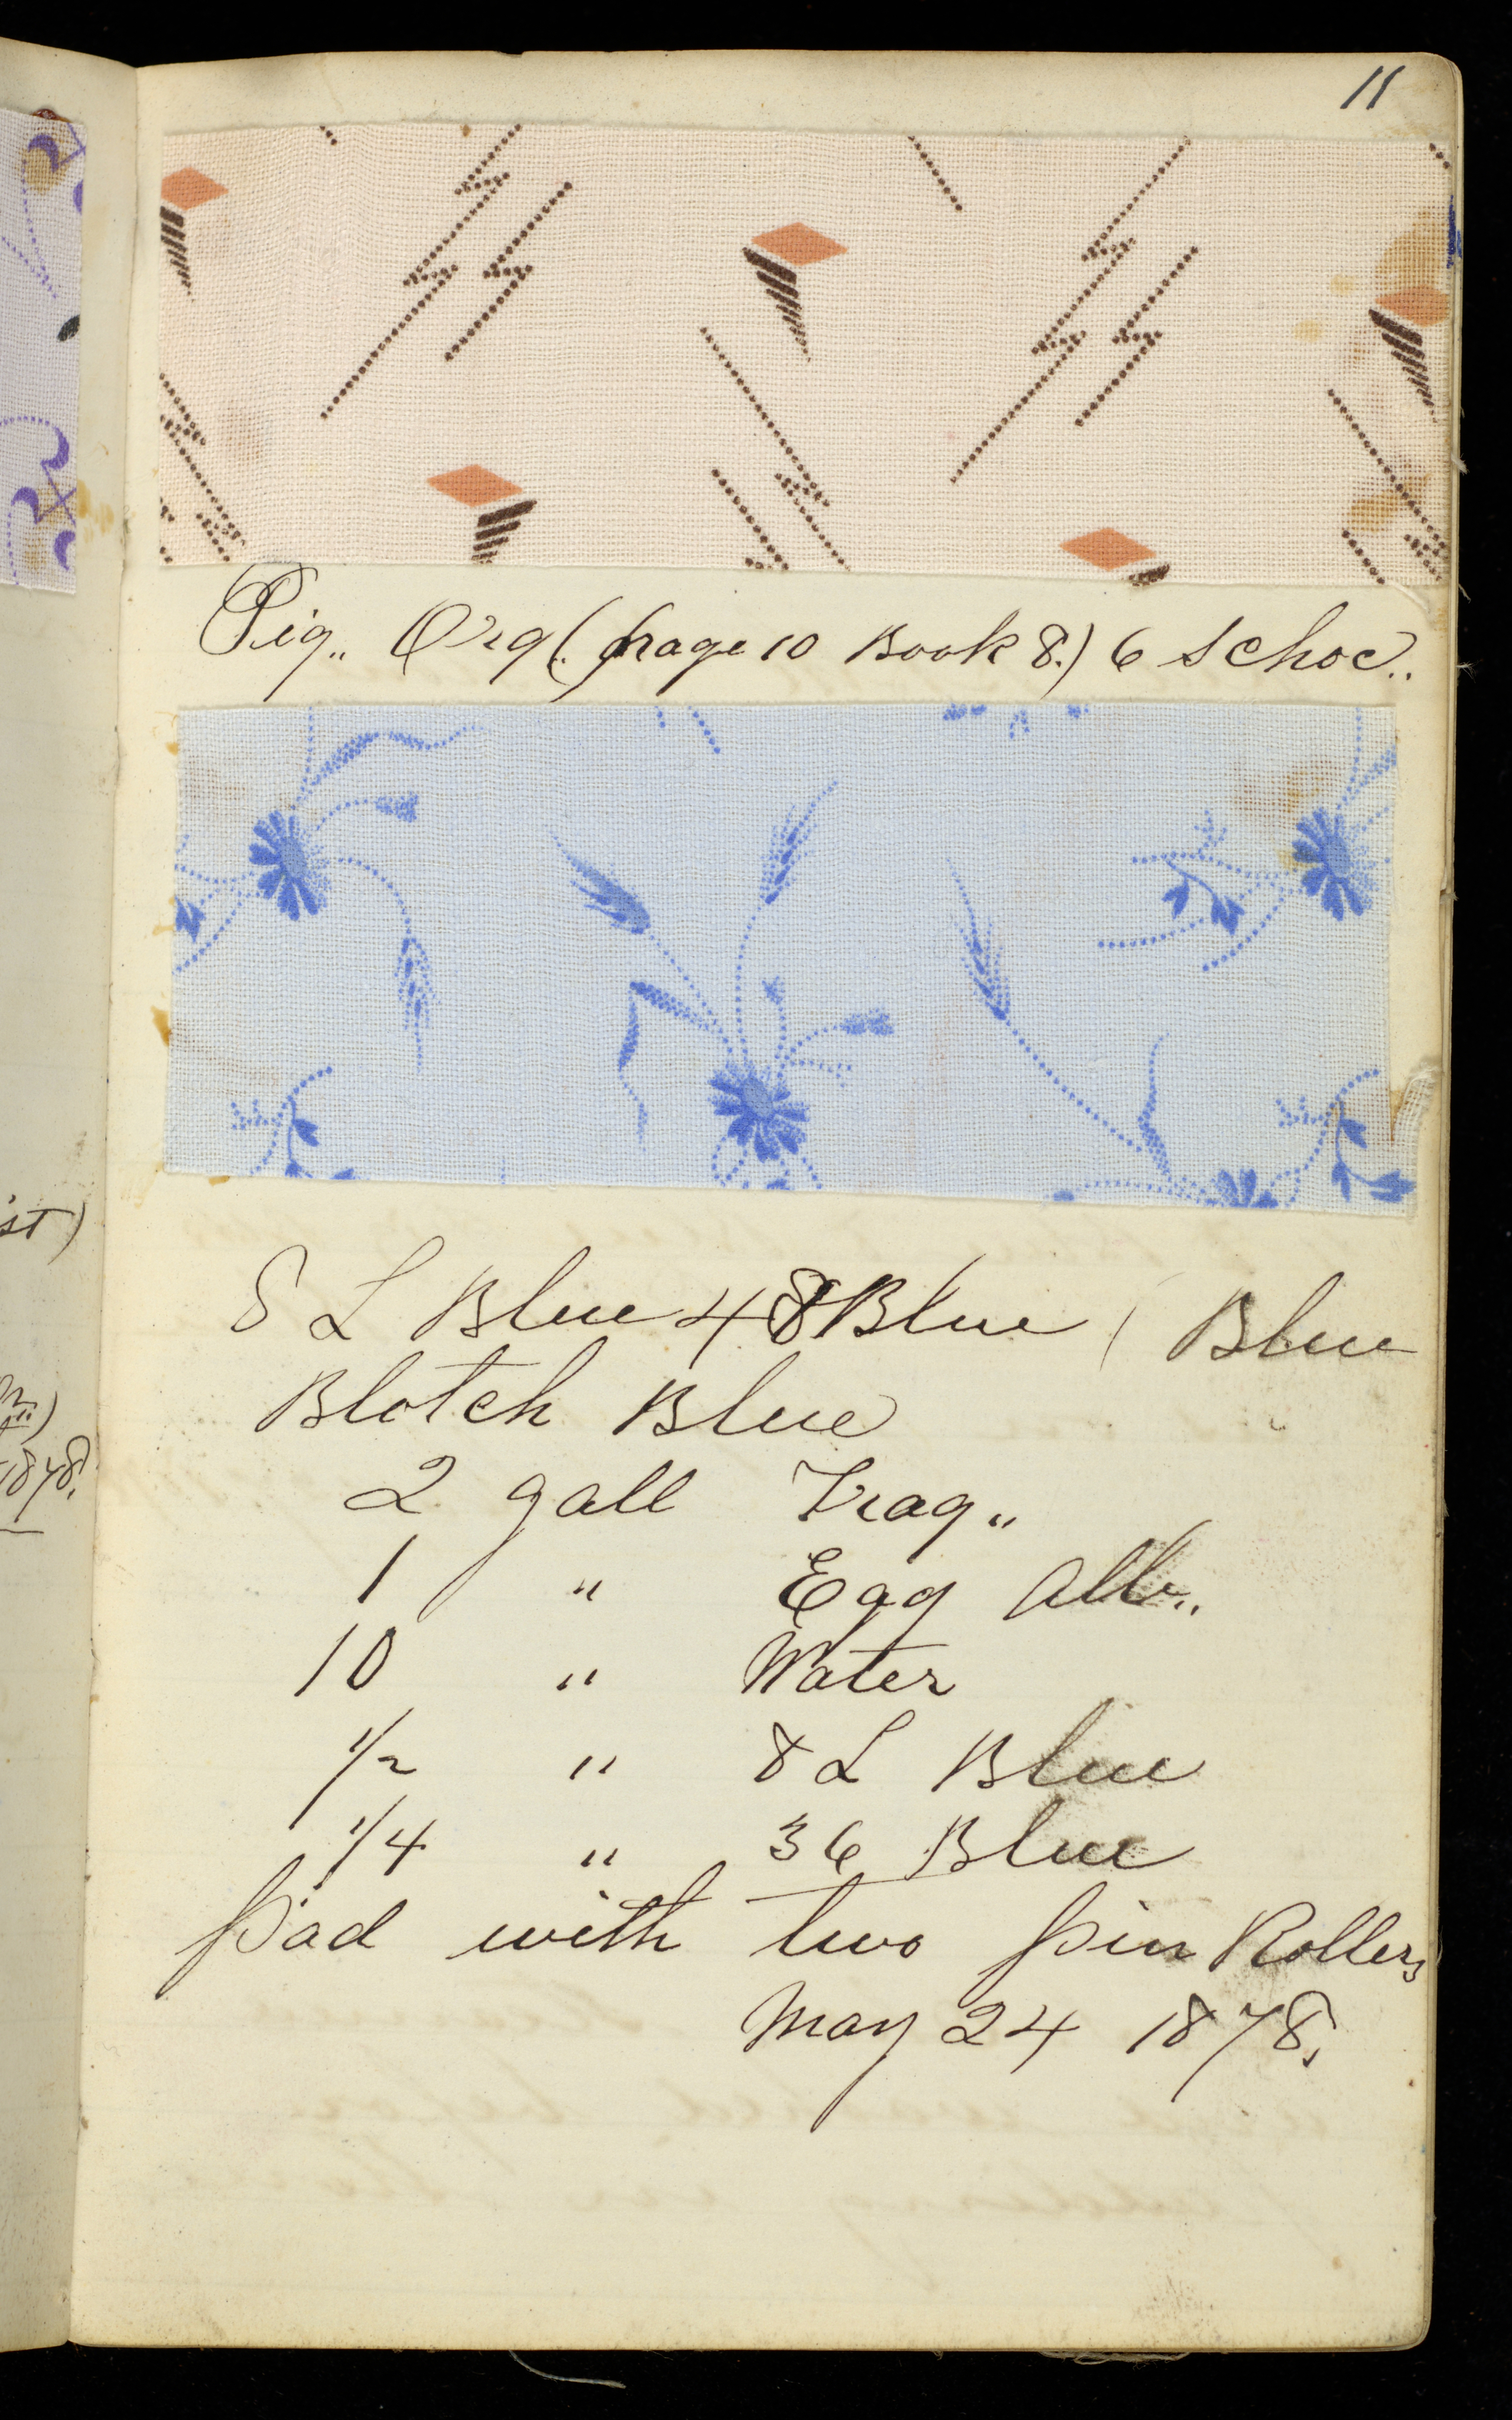 11
Pig,, Org,, (page 10 Book 8.) 6 S choc,,
8 L Blue 48 Blue / Blue
Blotch Blue
2 gall Trag,,
1 " Egg Alb,,
10 " Water
1/2 " 8 L Blue
1/4 " 36 Blue
Pad with two pin Rollers
May 24 1878.
st)
1878.